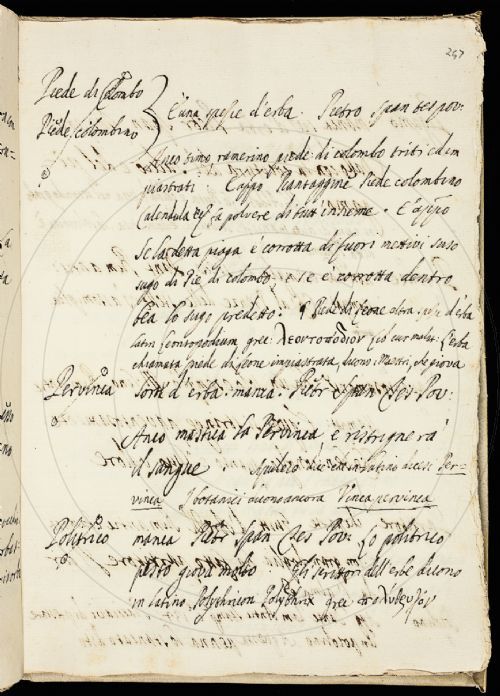 247
Piede di Colombo
Piede colombino
È una spesie d'erba. Pietro Span tes pov:
Anco timo ramerino piede di colombo triti ed in
quartati. Cappo Piantaggine Piede colombino
Calendula fa polvere di tutti insieme. E appo
Se la detta piaga è corrotta di fuori mettivi suso
sugo di Piè di colombo, se è corrotta dentro
bea lo sugo predetto. ¶ Piede di leone altra spe d'erba
latin Leontopodium grec: λεοντοποδιον
chiamata piede di leone impiastrata, dicono i Maestri, che giova
Pervinca
Sorta d'erba. manca. Pietr Span Tes Pov:
Anco mastica la Pervinca, e restrignerà
il sangue in latino dicesi Per-
vinca I botanici dicono ancora Vinca pervinca
Politrico
manca Pietr Span Tes Pov. Lo politrico
pesto giova molto Gli scrittori dell'erbe dicono
in latino Polytrichon Polythrix grec